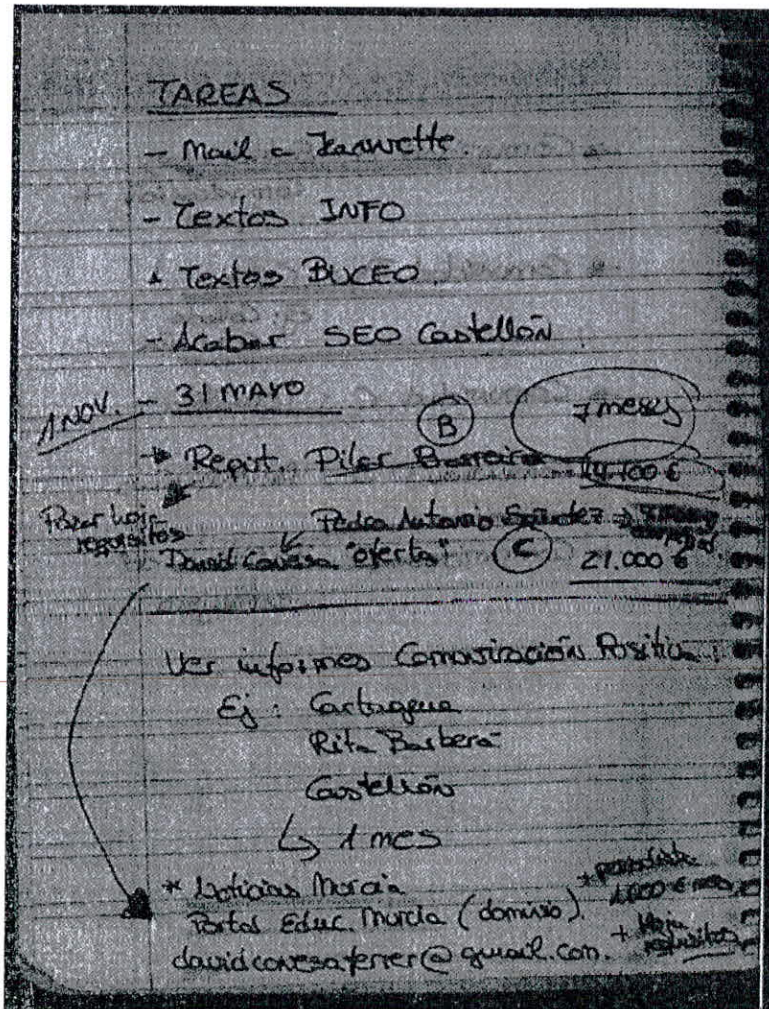 TAREAS
- Mail a Jeannette.
- Textos INFO
* Textos BUCEO.
- Acabar SEO Castellón.
1 NOV. - 31 MAYO
7 meses
B
* Reput. Pilar Barreiro 14.100 €
Pasar hoja requisitos
Pedro Antonio Sánchez →
David Conesa "oferta" C 21.000 €
Ver informes Comunicación Positiva:
Ej: Cartagena
Rita Barberá
Castellón
↳ 1 mes
* Noticias Murcia + periodista
Portal Educ. Murcia (dominio). 1.000 € mes
davidconesaferrer@gmail.com. + Hoja requisitos